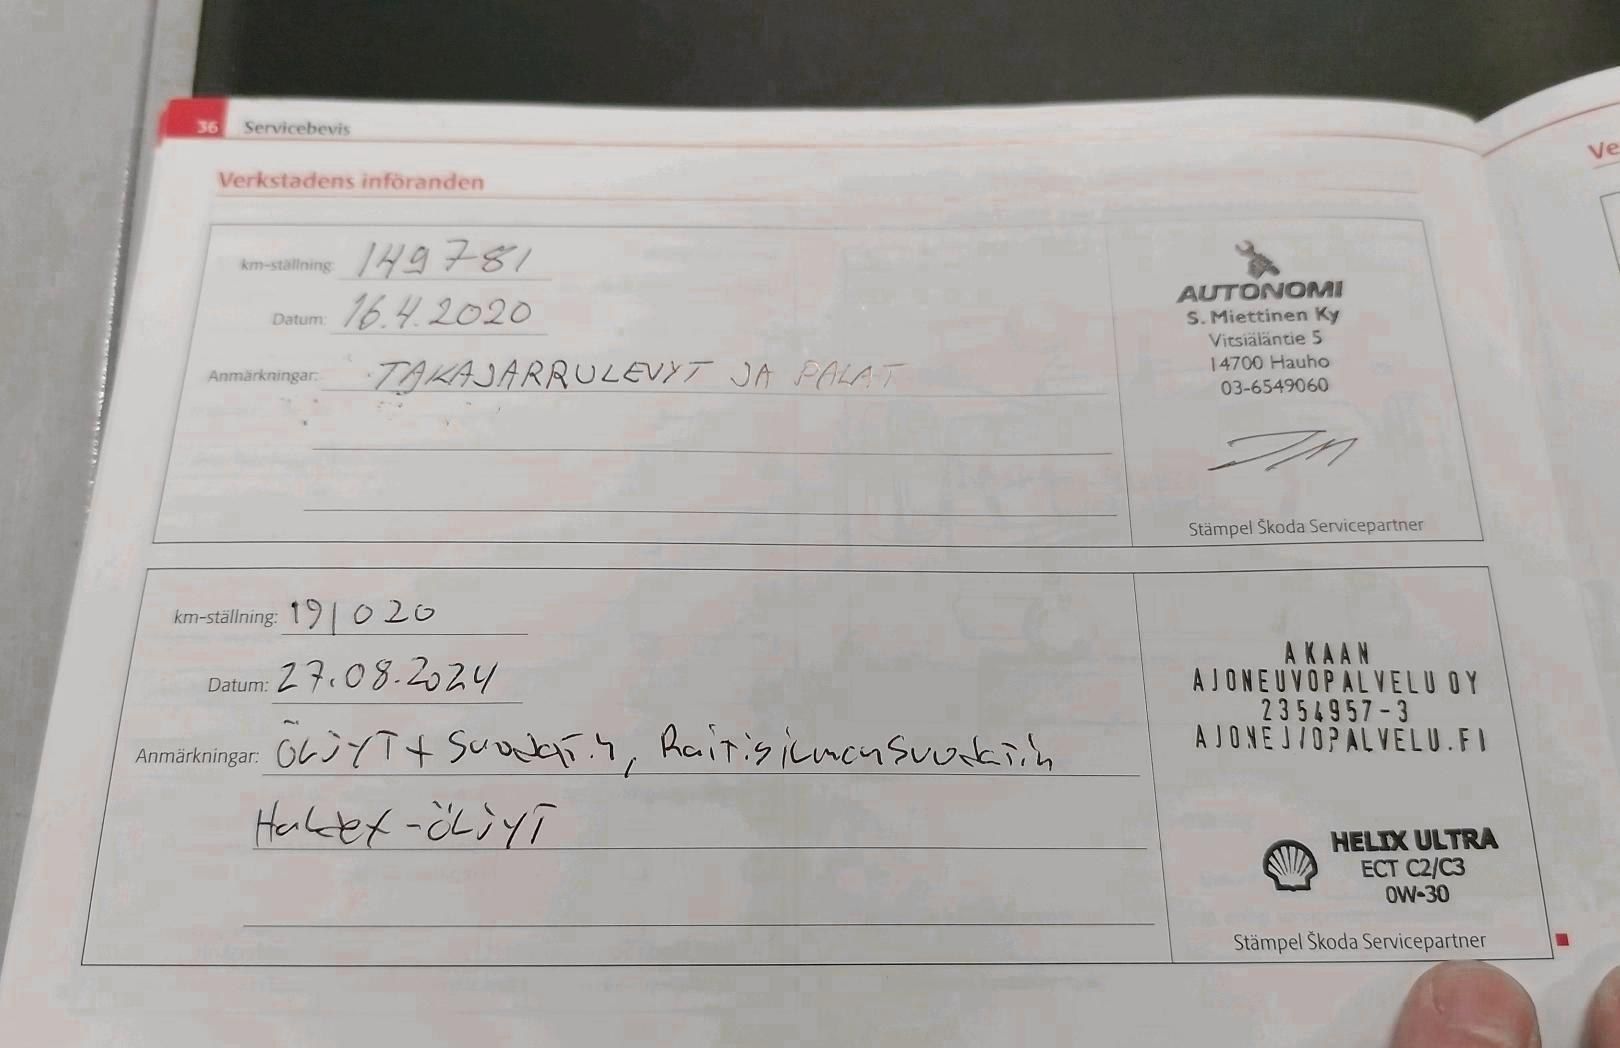 36 Servicebevis
Verkstadens införanden
Ve
km-ställning: 149781
Datum: 16.4.2020
Anmärkningar: TAKAJARRULEVYT JA PALAT
AUTONOMI
S. Miettinen Ky
Vitsiäläntie 5
14700 Hauho
03-6549060
Stämpel Škoda Servicepartner
km-ställning: 191020
Datum: 27.08.2024
Anmärkningar: ÖLJYT + Suodatin, Raitisilmansuodatin
Haldex-ÖLJYT
AKAAN
AJONEUVOPALVELU OY
2354957-3
AJONEUVOPALVELU.FI
HELIX ULTRA
ECT C2/C3
0W-30
Stämpel Škoda Servicepartner